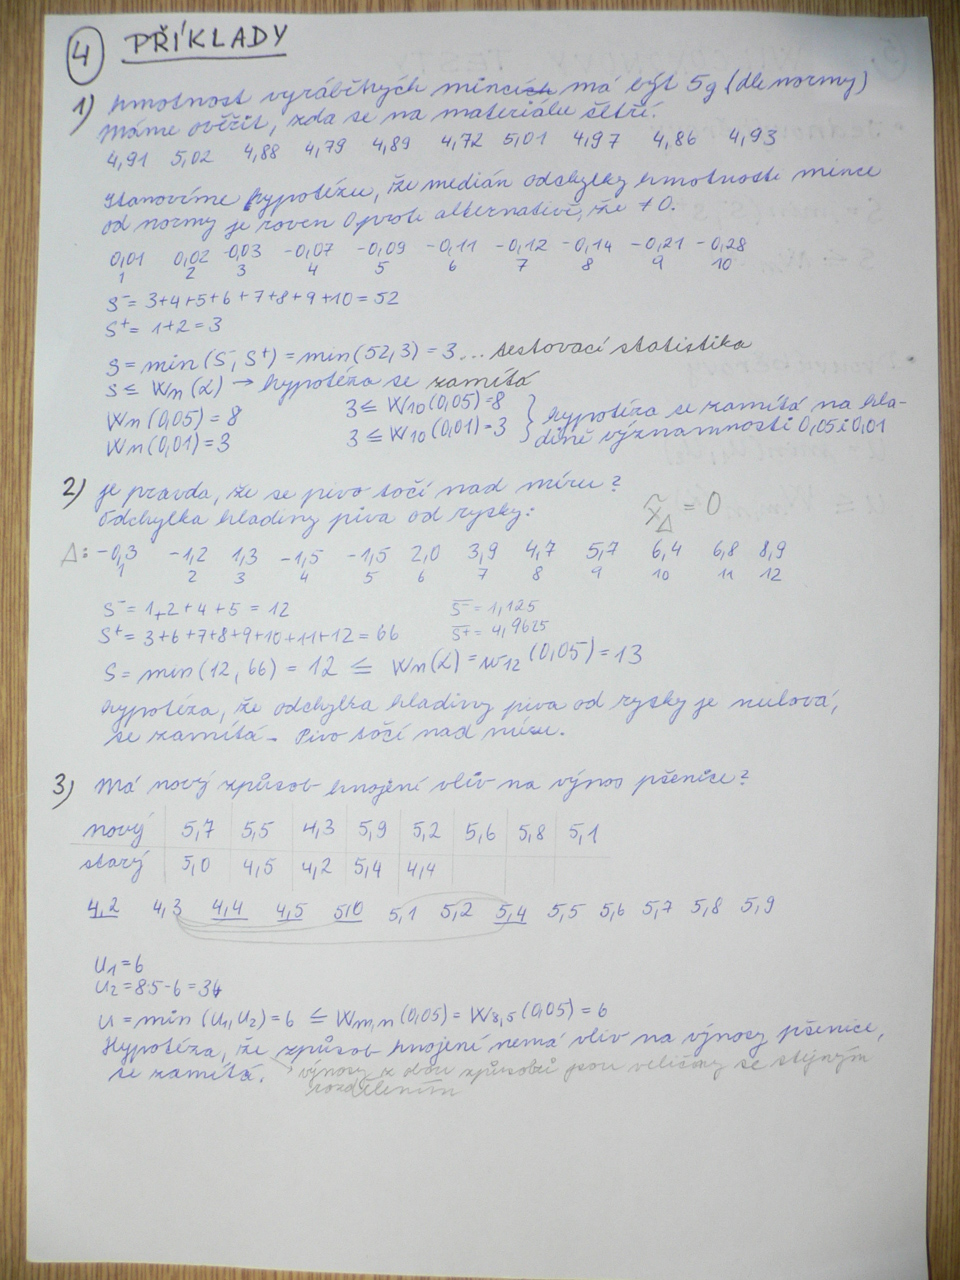 4 PŘÍKLADY
1) hmotnost vyráběných mincích má být 5g (dle normy)
Máme ověřit, zda se na materiálu šetří.
4,91 5,02 4,88 4,79 4,89 4,72 5,01 4,97 4,86 4,93
Stanovíme hypotézu, že medián odchylky hmotnosti mince
od normy je roven 0 proti alternativě, že ≠0.
0,01 0,02 -0,03 -0,07 -0,09 -0,11 -0,12 -0,14 -0,21 -0,28
1 2 3 4 5 6 7 8 9 10
S⁻= 3+4+5+6+7+8+9+10=52
S⁺= 1+2=3
S=min(S⁻, S⁺) = min(52,3) = 3 ... testovací statistika
S ≤ Wn(α) → hypotéza se zamítá
Wn(0,05) = 8 3 ≤ W10(0,05)=8
Wn(0,01)=3 3 ≤ W10(0,01)=3 } hypotéza se zamítá na hla-
dině významnosti 0,05 i 0,01
2) je pravda, že se pivo točí nad míru?
Odchylka hladiny piva od rysky: x̃Δ = 0
Δ: -0,3 -1,2 1,3 -1,5 -1,5 2,0 3,9 4,7 5,7 6,4 6,8 8,9
1 2 3 4 5 6 7 8 9 10 11 12
S⁻= 1+2+4+5 = 12 S̅⁻ = 1,125
S⁺= 3+6+7+8+9+10+11+12=66 S̅⁺ = 4,9625
S= min(12, 66) = 12 ≤ Wn(α) = w12 (0,05) = 13
hypotéza, že odchylka hladiny piva od rysky je nulová,
se zamítá - Pivo točí nad míru.
3) Má nový způsob hnojení vliv na výnos pšenice?
nový 5,7 5,5 4,3 5,9 5,2 5,6 5,8 5,1
starý 5,0 4,5 4,2 5,4 4,4
4,2 4,3 4,4 4,5 5,0 5,1 5,2 5,4 5,5 5,6 5,7 5,8 5,9
U1=6
U2=8·5-6=34
U=min (U1,U2)=6 ≤ Wm,n(0,05)=W8,5(0,05) = 6
Hypotéza, že způsob hnojení nemá vliv na výnosy pšenice,
se zamítá. výnosy z obou způsobů jsou veličiny se stejným
rozdělením